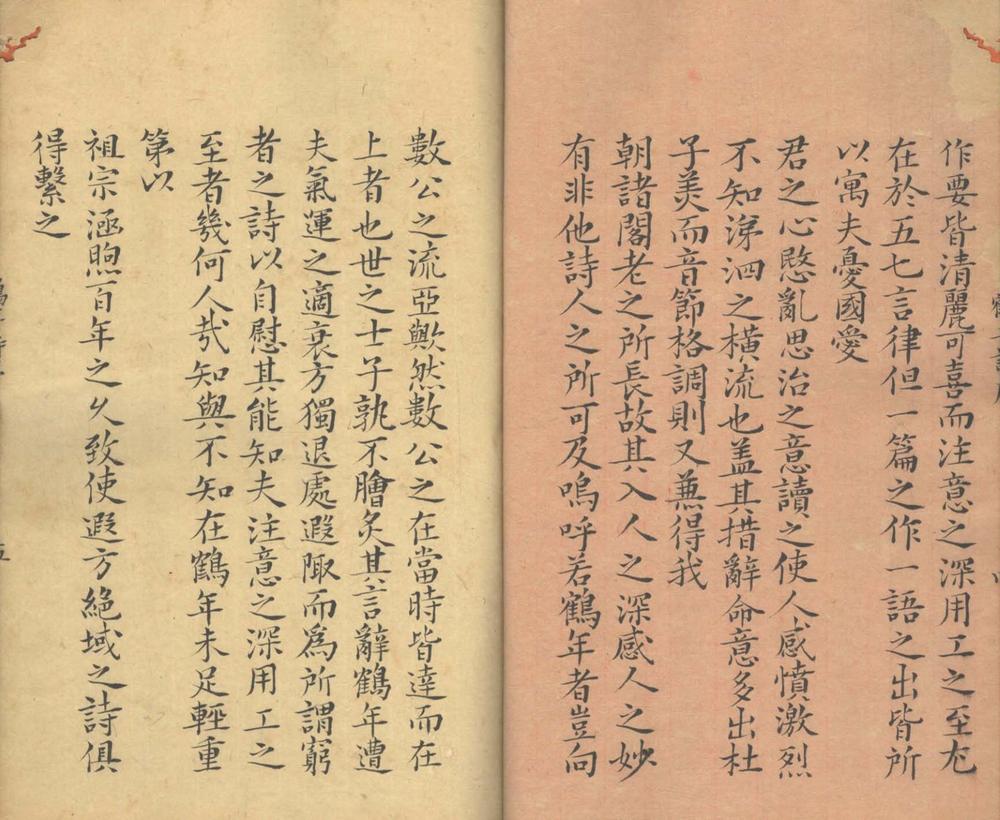 作要皆清麗可喜而注意之深用工之至尤
在於五七言律但一篇之作一語之出皆所
以寓夫憂國愛
君之心愍亂思治之意讀之使人感憤激烈
不知涕泗之橫流也盖其措辭命意多出杜
子美而音節格調則又兼得我
朝諸閣老之所長故其入人之深感人之妙
有非他詩人之所可及嗚呼若鶴年者豈向
數公之流亞歟然數公之在當時皆達而在
上者也世之士子孰不膾炙其言辭鶴年遭
夫氣運之適衰方獨退處遐陬而爲所謂窮
者之詩以自慰其能知夫注意之深用工之
至者幾何人哉知與不知在鶴年未足輕重
第以
祖宗涵煦百年之久致使遐方絶域之詩俱
得繫之